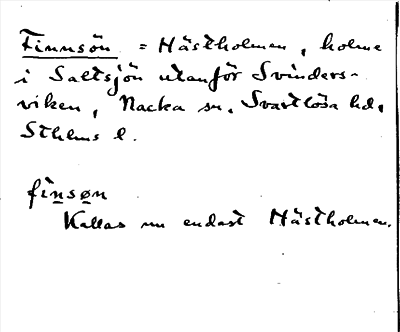 Finnsön = Hästholmen, holme
i Saltsjön utanför Svinders-
viken, Nacka sn, Svartlösa hd,
Sthlms l.
finsøn
Kallas nu endast Hästholmen.